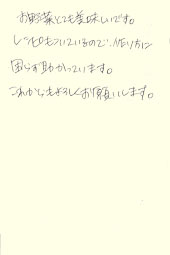 お野菜とても美味しいです。
レシピもついているので、作り方に
困らず助かっています。
これからもよろしくお願いします。